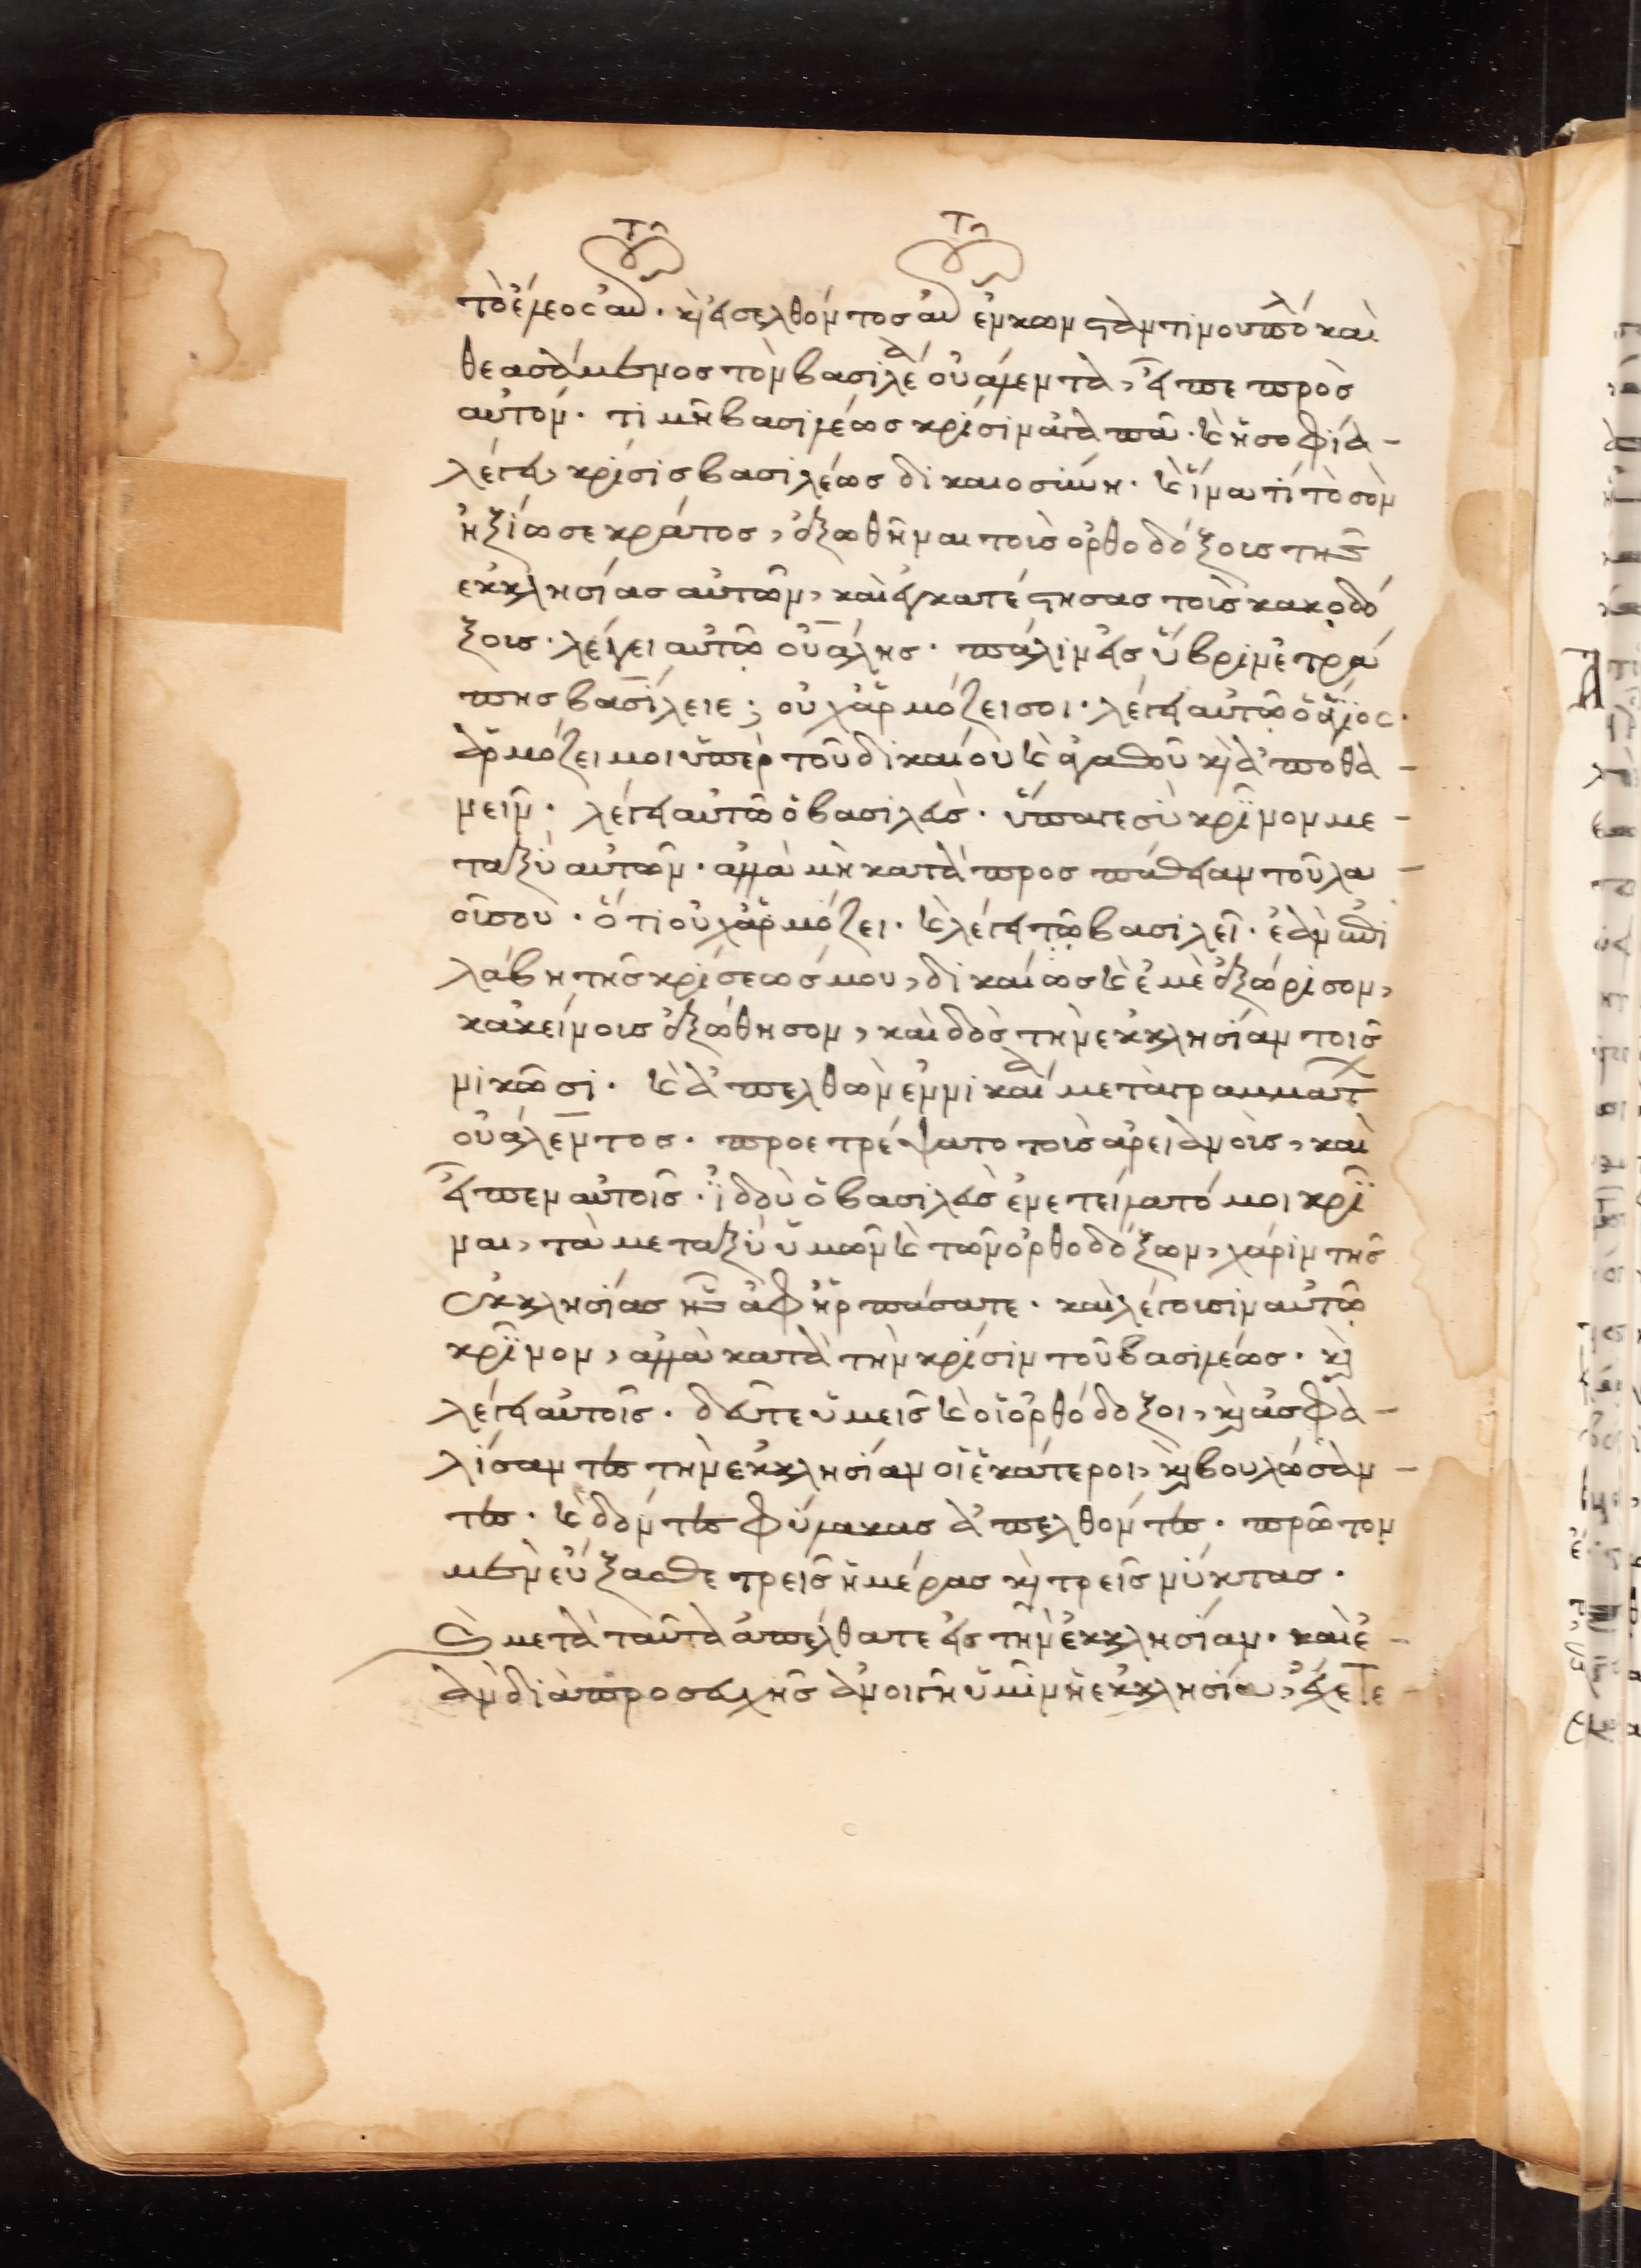 τὸ ἔλεος αὐτοῦ. καὶ εἰσελθόντος αὐτοῦ ἐν κωνσταντίνου πόλ καὶ
θεασάμενος τὸν βασιλέα οὐάλεντα, εἶπε πρὸς
αὐτόν. τιμὴ βασιλέως κρίσιν ἀγαπᾶ. καὶ ἡ σοφία
λέγει, κρίσις βασιλέως δικαιοσύνη. καὶ ἵνα τί τὸ σὸν
ἠξίωσε κράτος, ἐξωθῆναι τοὺς ὀρθοδόξοις τῆς
ἐκκλησίας αὐτῶν, καὶ ἐγκατέστησας τοῖς κακοδό
ξοις. λέγει αὐτῷ οὐάλης. πάλιν εἰς ὕβριν ἐτρά
πης βασίλειε; οὐχ ἁρμόζει σοι. λέγει αὐτῷ ὁ ἅγιος.
ἁρμόζει μοι ὑπὲρ τοῦ δικαίου καὶ ἀγαθοῦ καὶ ἀποθα
νεῖν. λέγει αὐτῷ ὁ βασιλεύς. ὕπαγε σὺ κρῖνον με
ταξὺ αὐτῶν. ἀλλὰ μὴ κατὰ προσπάθειαν τοῦ λα
οῦ σου. ὅτι οὐχ ἁρμόζει. καὶ λέγει τῷ βασιλεῖ. ἐὰν ἐπι
λάβη τῆς κρίσεώς μου, δικαίως καὶ ἐμὲ ἐξώρισον,
κἀκείνοις ἐξώθησον, καὶ δὸς τὴν ἐκκλησίαν τοῖς
νικῶσι. καὶ ἀπελθὼν ἐν νικαία μετὰ γραμμάτων
οὐάλεντος. προετρέψατο τοὺς ἀρειανοὺς, καὶ
εἶπεν αὐτοῖς. ἰδοὺ ὁ βασιλεὺς ἐνετείλατό μοι κρῖ
ναι, τὰ μεταξὺ ὑμῶν καὶ τῶν ὀρθοδόξων, χάριν τῆς
ἐκκλησίας ἧς ἀφηρπάσατε. καὶ λέγουσιν αὐτῷ
κρῖνον, ἀλλὰ κατὰ τὴν κρίσιν τοῦ βασιλέως. καὶ
λέγει αὐτοῖς. δεῦτε ὑμεῖς καὶ οἱ ὀρθόδοξοι, καὶ ἀσφα
λίσαντες τὴν ἐκκλησίαν οἱ ἑκάτεροι, καὶ βουλώσαν
τες. καὶ δόντες φύλακας ἀπελθόντες. πρῶτον
μὲν εὔξασθε τρεῖς ἡμέρας καὶ τρεῖς νύκτας.
καὶ μετὰ ταῦτα ἀπέλθατε εἰς τὴν ἐκκλησίαν. καὶ ἐ
ὰν διὰ προσευχῆς ἀνοιγῆ ὑμῖν ἡ ἐκκλησία, ἔχετε